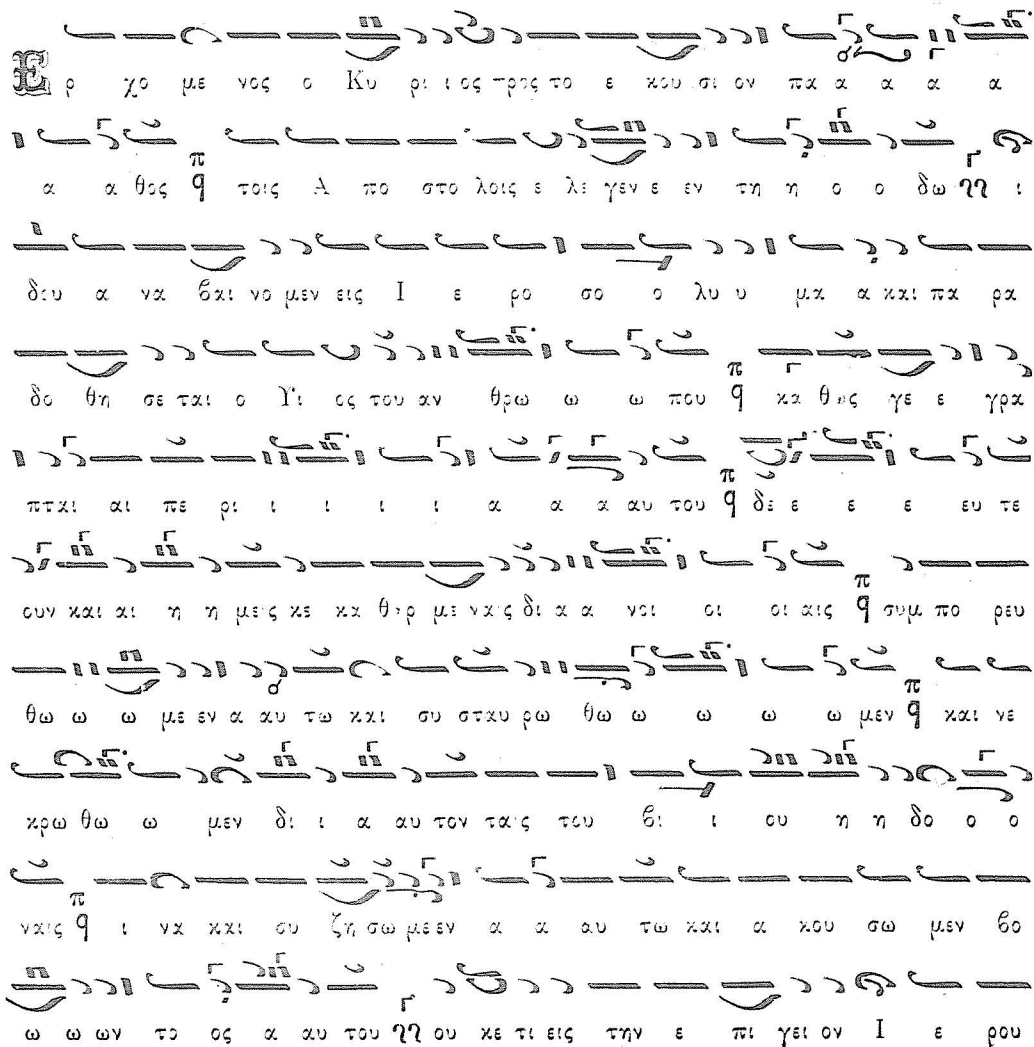 Ε ρ χο με νος ο Κυ ρι ι ος προς το ε κου σι ον πα α α α α
α α θος π q τοις Α πο στο λοις ε λε γεν ε εν τη η ο ο δω Γ ι
δου α να βαι νο μεν εις Ι ε ρο σο ο λυ υ μα α και πα ρα
δο θη σε ται ο Υι ος του αν θρω ω ω που π q κα θως γε ε γρα
πται αι πε ρι ι ι ι ι α α α αυ του π q δε ε ε ε ευ τε
ουν και αι η η μεις κε κα θαρ με ναις δι α α νοι οι οι αις π q συμ πο ρευ
θω ω ω με εν α αυ τω και συ σταυ ρω θω ω ω ω ω μεν π q και νε
κρω θω ω μεν δι ι α αυ τον ταις του βι ι ου η η δο ο ο
ναις π q ι να και συ ζη σω με εν α α αυ τω και α κου σω μεν βο
ω ω ων το ος α αυ του Γ ου κε τι εις την ε πι γει ον Ι ε ρου